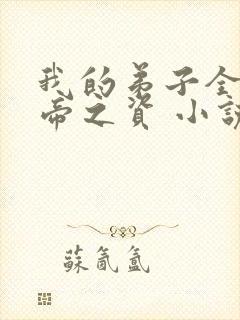 我的弟子全
帝之資 小說
蘇氤氳